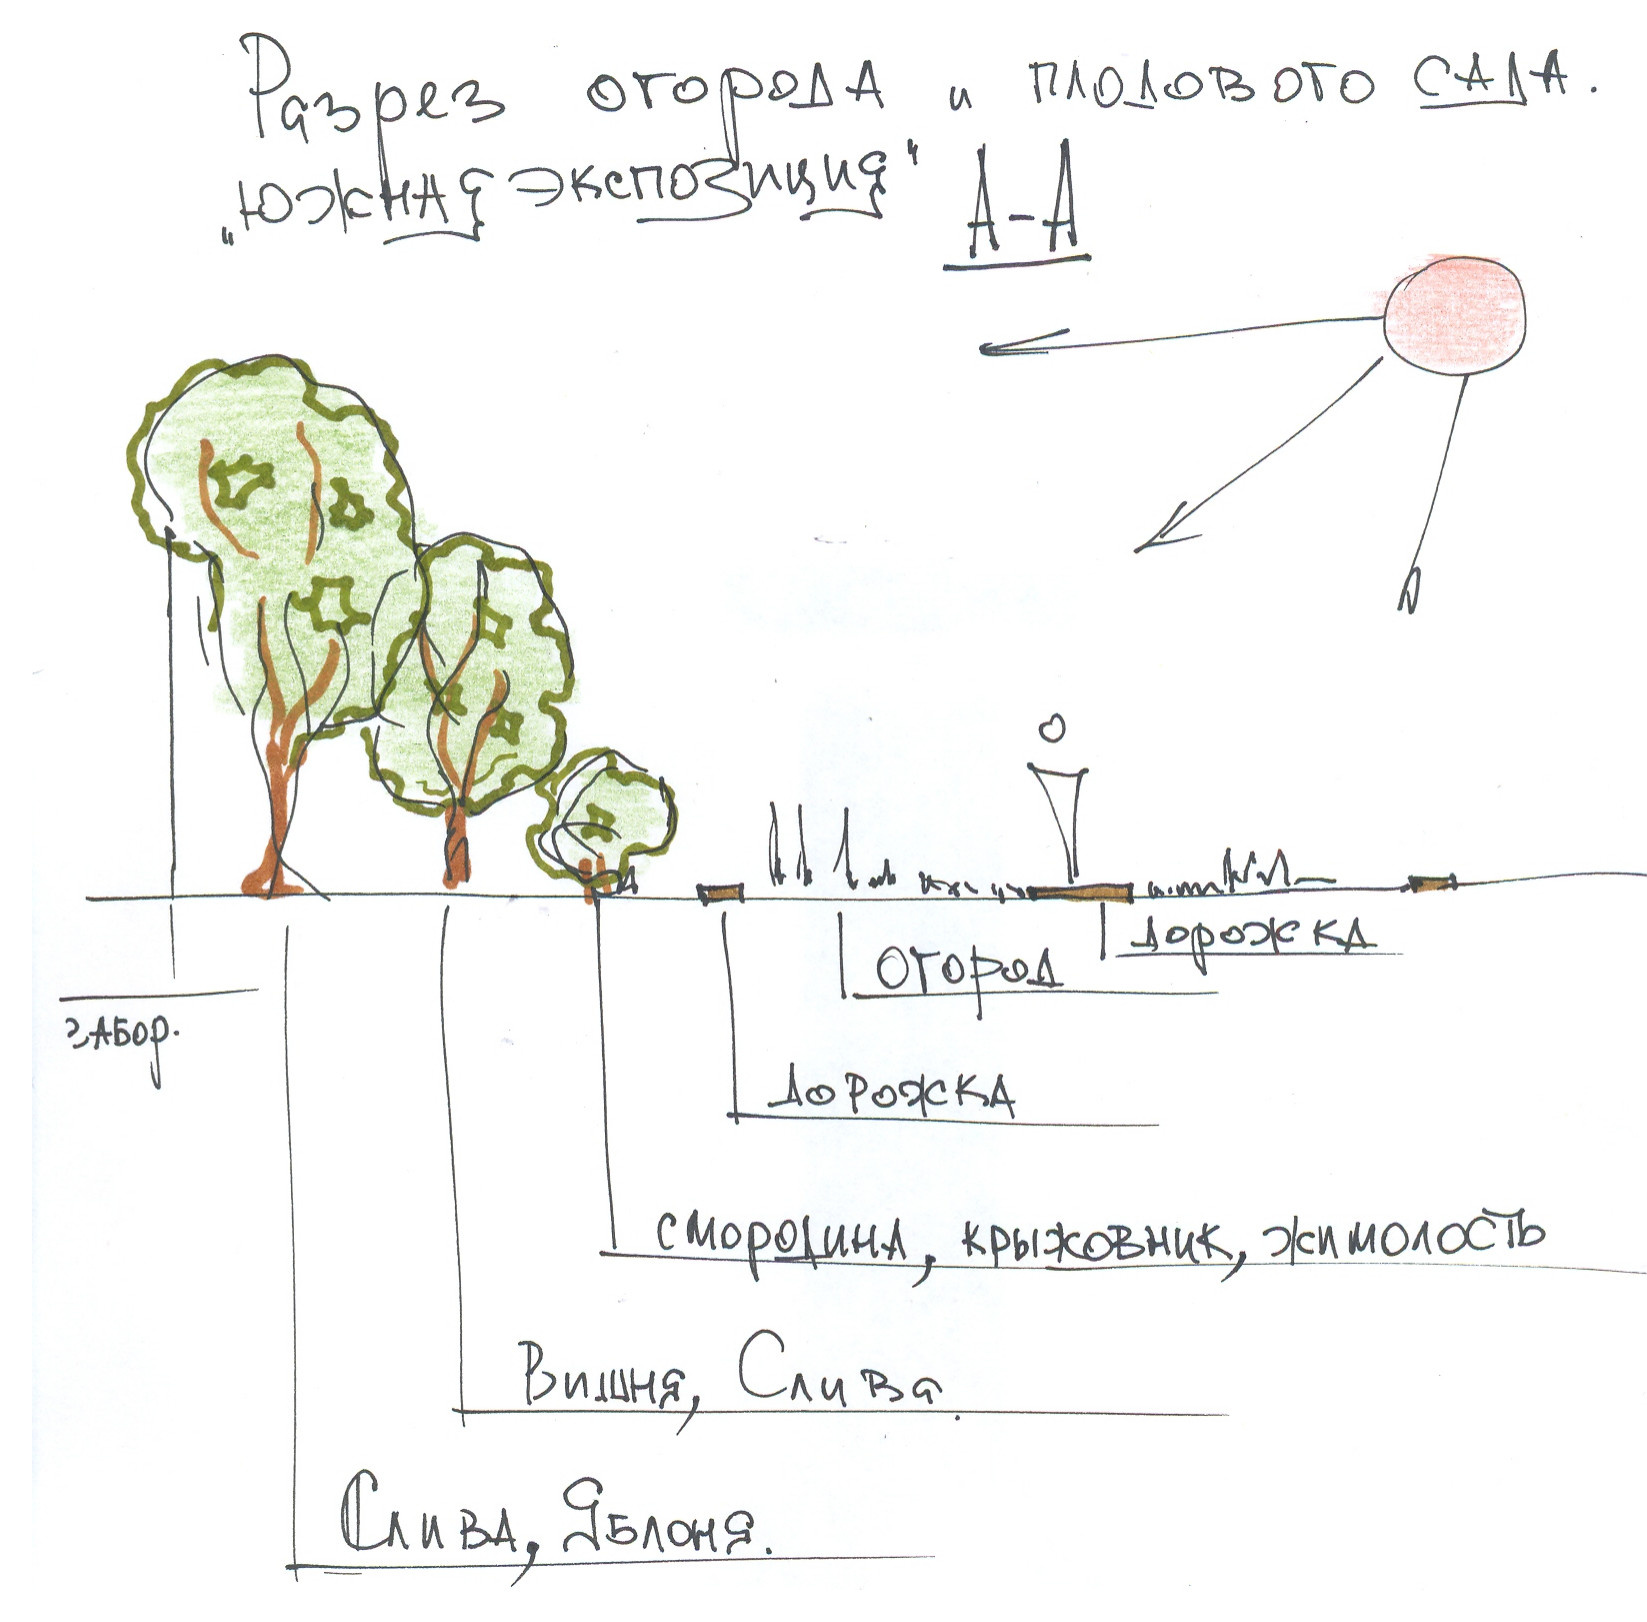 Разрез огорода и плодового сада.
„южная экспозиция“
А-А
дорожка
огород
забор.
дорожка
смородина, крыжовник, жимолость
Вишня, Слива.
Слива, Яблоня.